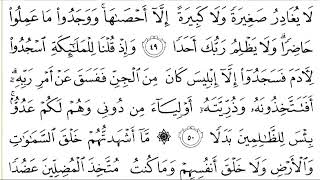 لَا يُغَادِرُ صَغِيرَةً وَلَا كَبِيرَةً إِلَّآ أَحْصَىٰهَا ۚ وَوَجَدُوا۟ مَا عَمِلُوا۟
حَاضِرًا ۗ وَلَا يَظْلِمُ رَبُّكَ أَحَدًا ﴿٤٩﴾ وَإِذْ قُلْنَا لِلْمَلَٰٓئِكَةِ ٱسْجُدُوا۟
لِءَادَمَ فَسَجَدُوٓا۟ إِلَّآ إِبْلِيسَ كَانَ مِنَ ٱلْجِنِّ فَفَسَقَ عَنْ أَمْرِ رَبِّهِۦٓ ۗ
أَفَتَتَّخِذُونَهُۥ وَذُرِّيَّتَهُۥٓ أَوْلِيَآءَ مِن دُونِى وَهُمْ لَكُمْ عَدُوٌّۢ ۚ
بِئْسَ لِلظَّٰلِمِينَ بَدَلًا ﴿٥٠﴾ ۞ مَّآ أَشْهَدتُّهُمْ خَلْقَ ٱلسَّمَٰوَٰتِ
وَٱلْأَرْضِ وَلَا خَلْقَ أَنفُسِهِمْ وَمَا كُنتُ مُتَّخِذَ ٱلْمُضِلِّينَ عَضُدًا